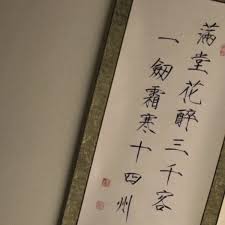 滿堂花醉三千客
一劔霜寒十四州